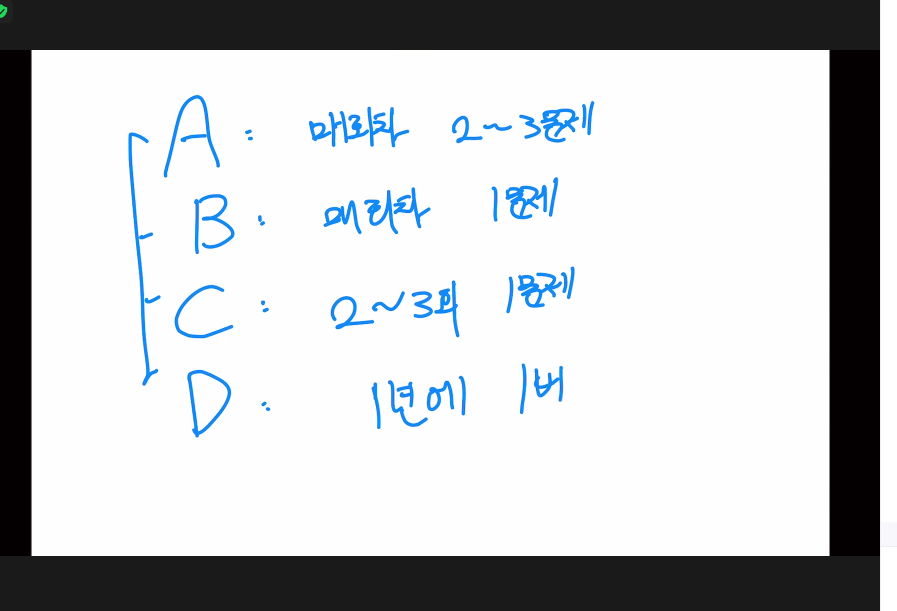 A : 매회차 2~3문제
B : 매회차 1문제
C : 2~3회 1문제
D : 1년에 1버